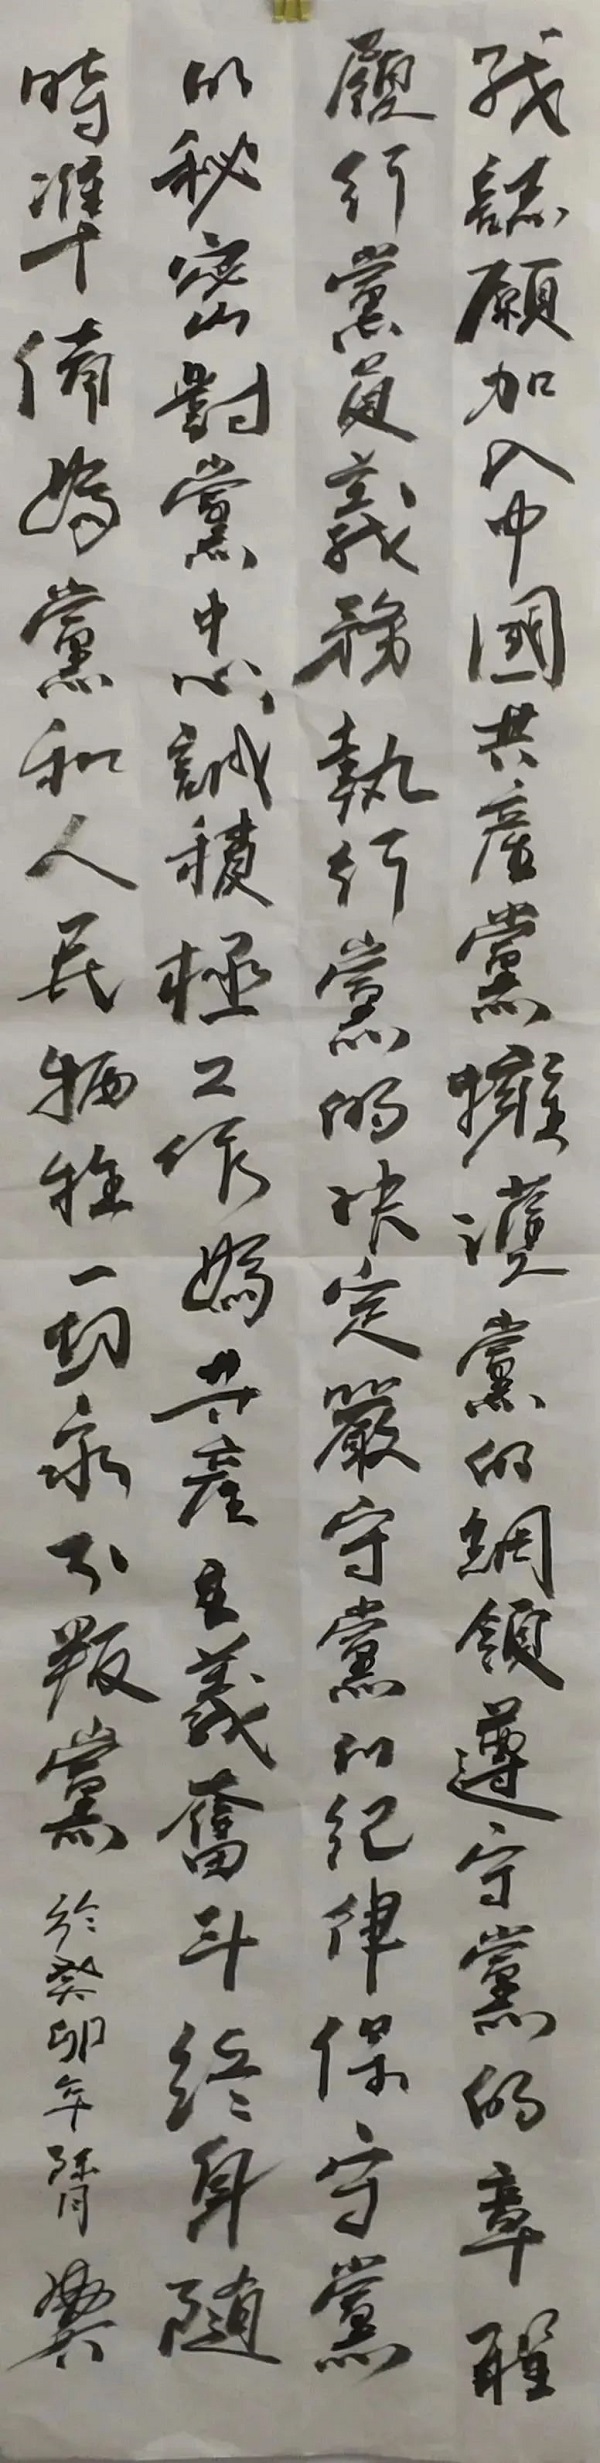 我誌願加入中國共産黨擁護黨的綱領遵守黨的章程
履行黨員義務執行黨的決定嚴守黨的紀律保守黨
的秘密對黨忠誠積極工作爲共産主義奮斗終身隨
時準備爲黨和人民犧牲一切永不叛黨
於癸卯年